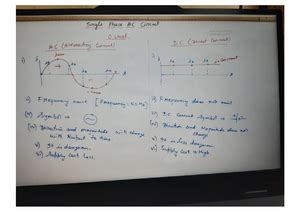 Single Phase AC Circuit
AC (Alternating Current)
D.C. (Direct Current)
i)
i)
ii) Frequency exist [Frequency = 50 Hz]
iii) Symbol →
iv) Direction and magnitude will change
with Respect to time
v) It is dangerous.
vi) Supply Cost Less.
ii) Frequency does not exist
iii) D.C Current Symbol
iv) Direction and Magnitude does not
change
v) It is less dangerous.
vi) Supply Cost is High